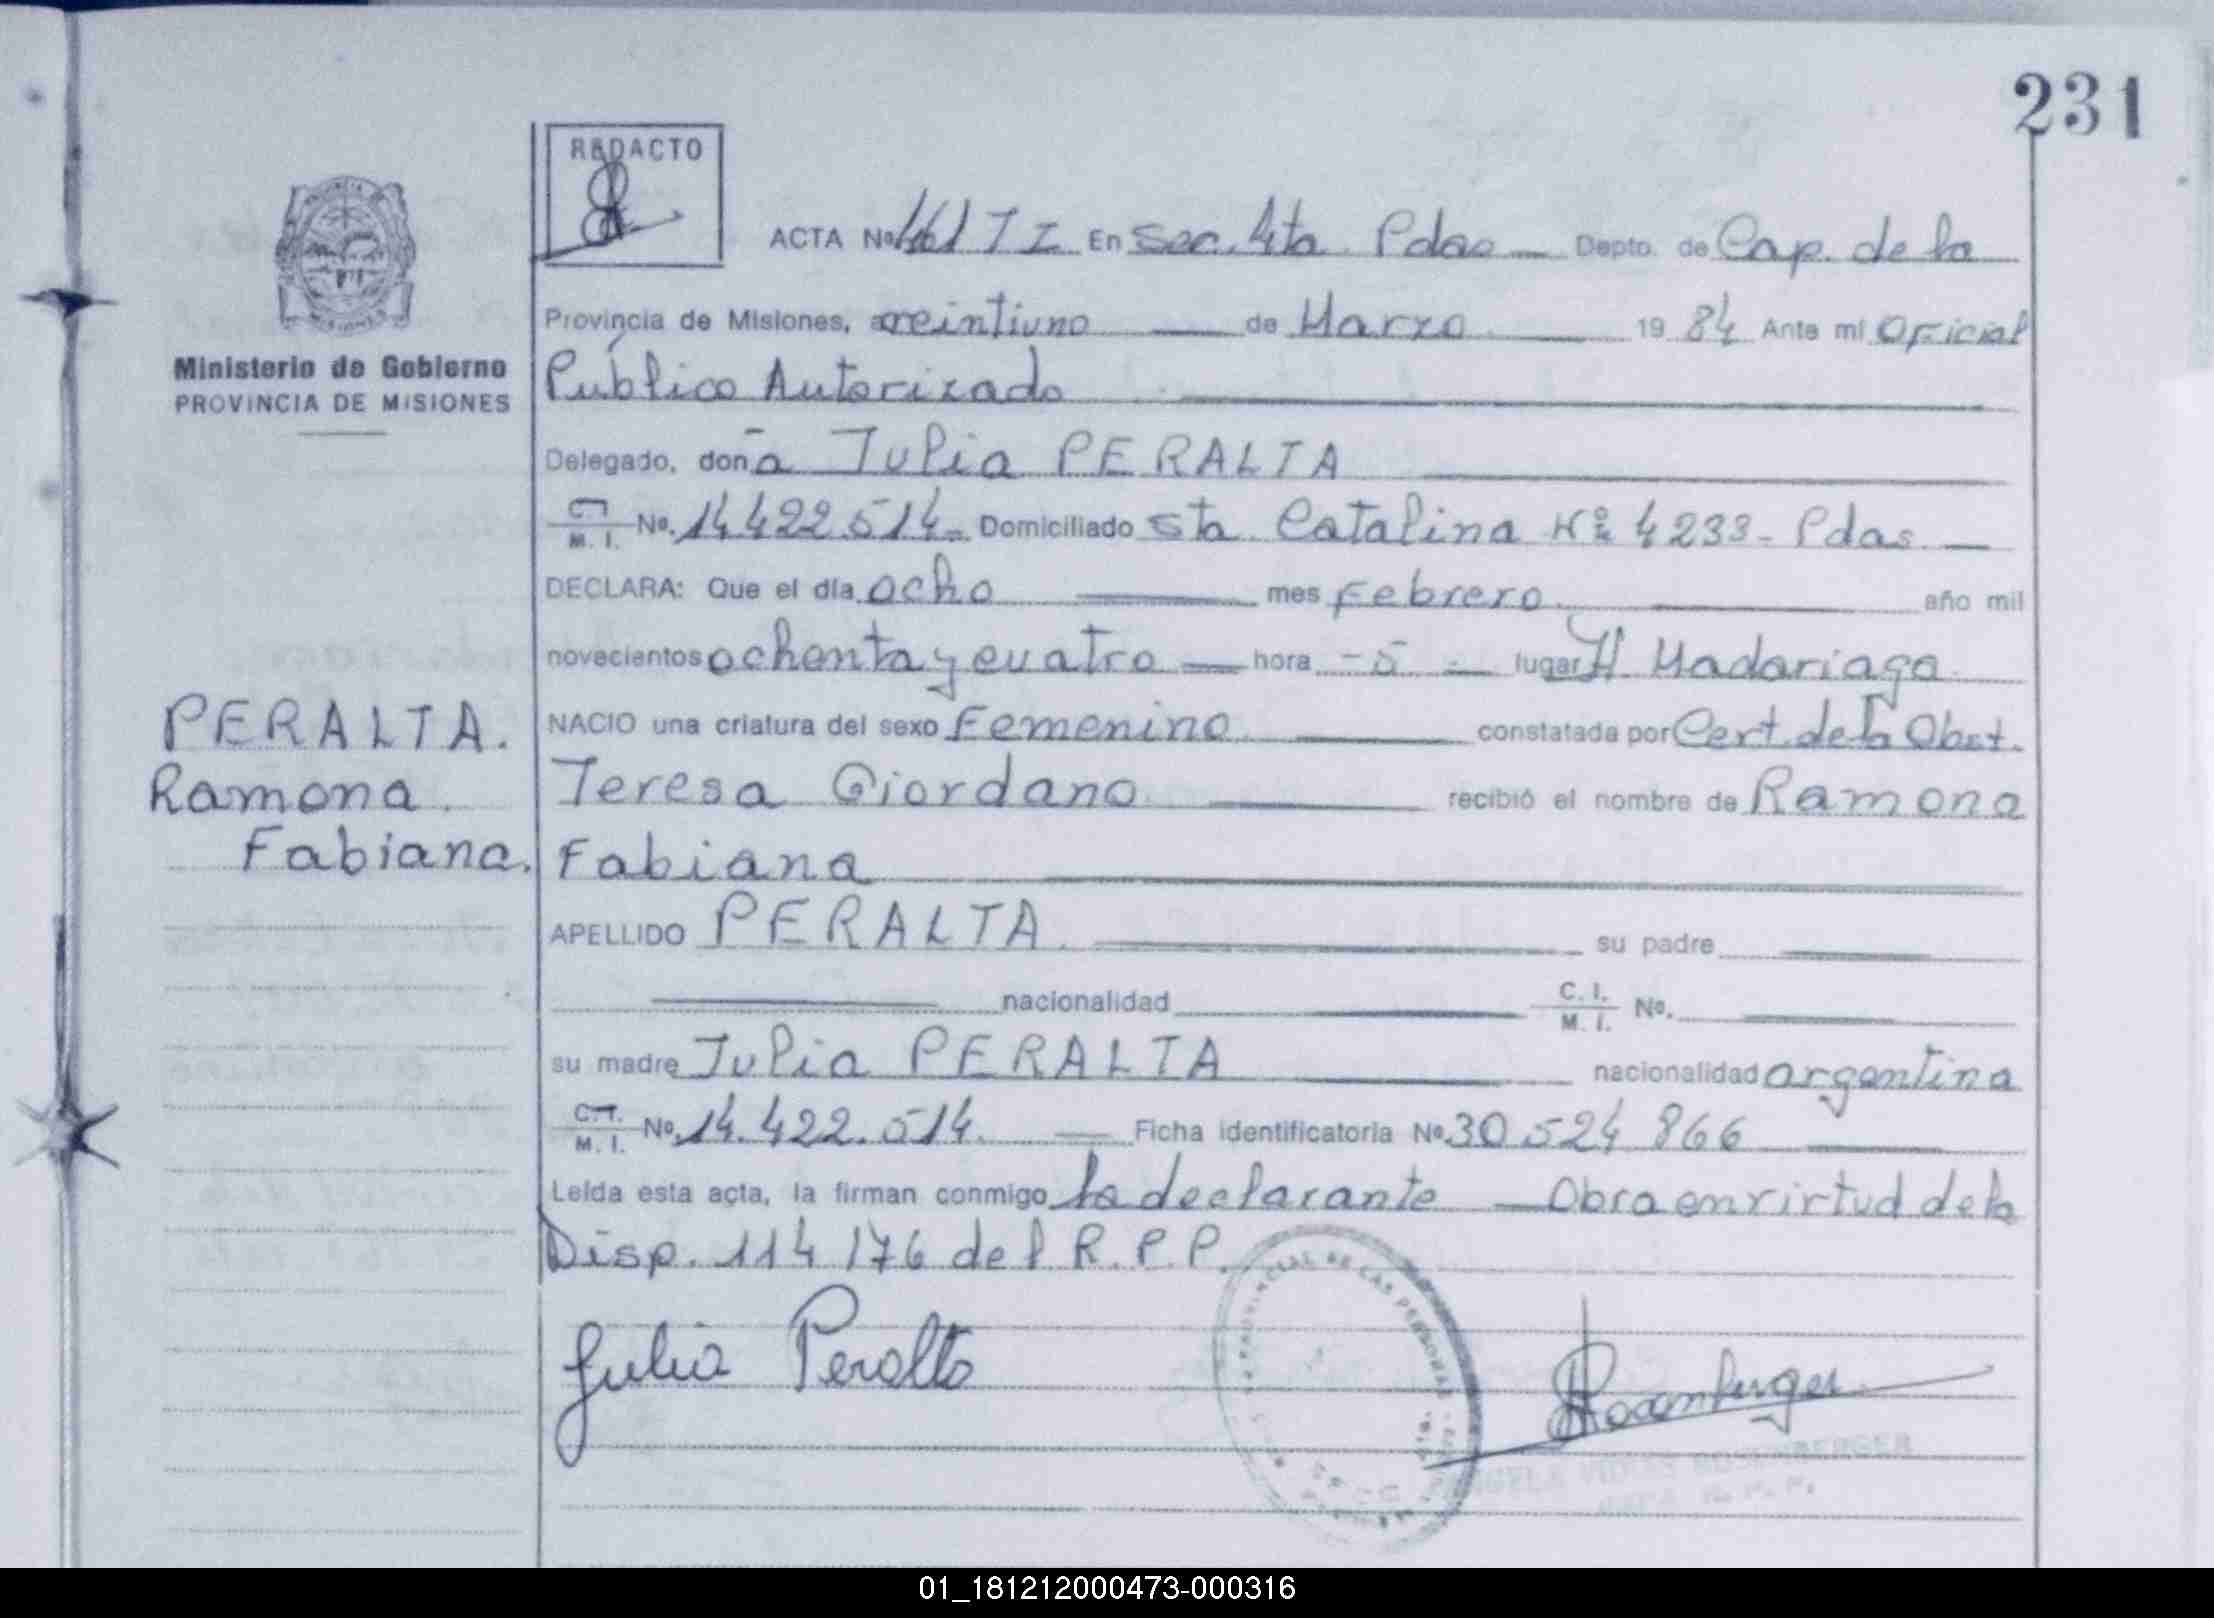 231
REDACTO
ACTA No 461 T I En Sec. 4ta. Pdas Depto. de Cap. de la
Provincia de Misiones, a veintiuno de Marzo 19 84 Ante mi Oficial
Público Autorizado
Ministerio de Gobierno
PROVINCIA DE MISIONES
Delegado, doña Julia PERALTA
C.I. M. I. No. 14.422.514.- Domiciliado Sta. Catalina Nº 4233 - Pdas.
DECLARA: Que el día ocho mes Febrero año mil
novecientos ochenta y cuatro hora -5- lugar H Madariaga
NACIO una criatura del sexo Femenino constatada por Cert. de la Obst.
Teresa Giordano recibió el nombre de Ramona
Fabiana
PERALTA.
Ramona
Fabiana.
APELLIDO PERALTA su padre
nacionalidad C. I. M. I. No.
su madre Julia PERALTA nacionalidad argentina
C.I. M. I. No. 14.422.514. Ficha identificatoria No 30 524 866
Leída esta acta, la firman conmigo la declarante Obra en virtud de la
Disp. 114/76 del R.P.P.
Julia Peralta
PROVINCIAL DE LAS PERSONAS
Rosenberger
ROSENBERGER
01_181212000473-000316